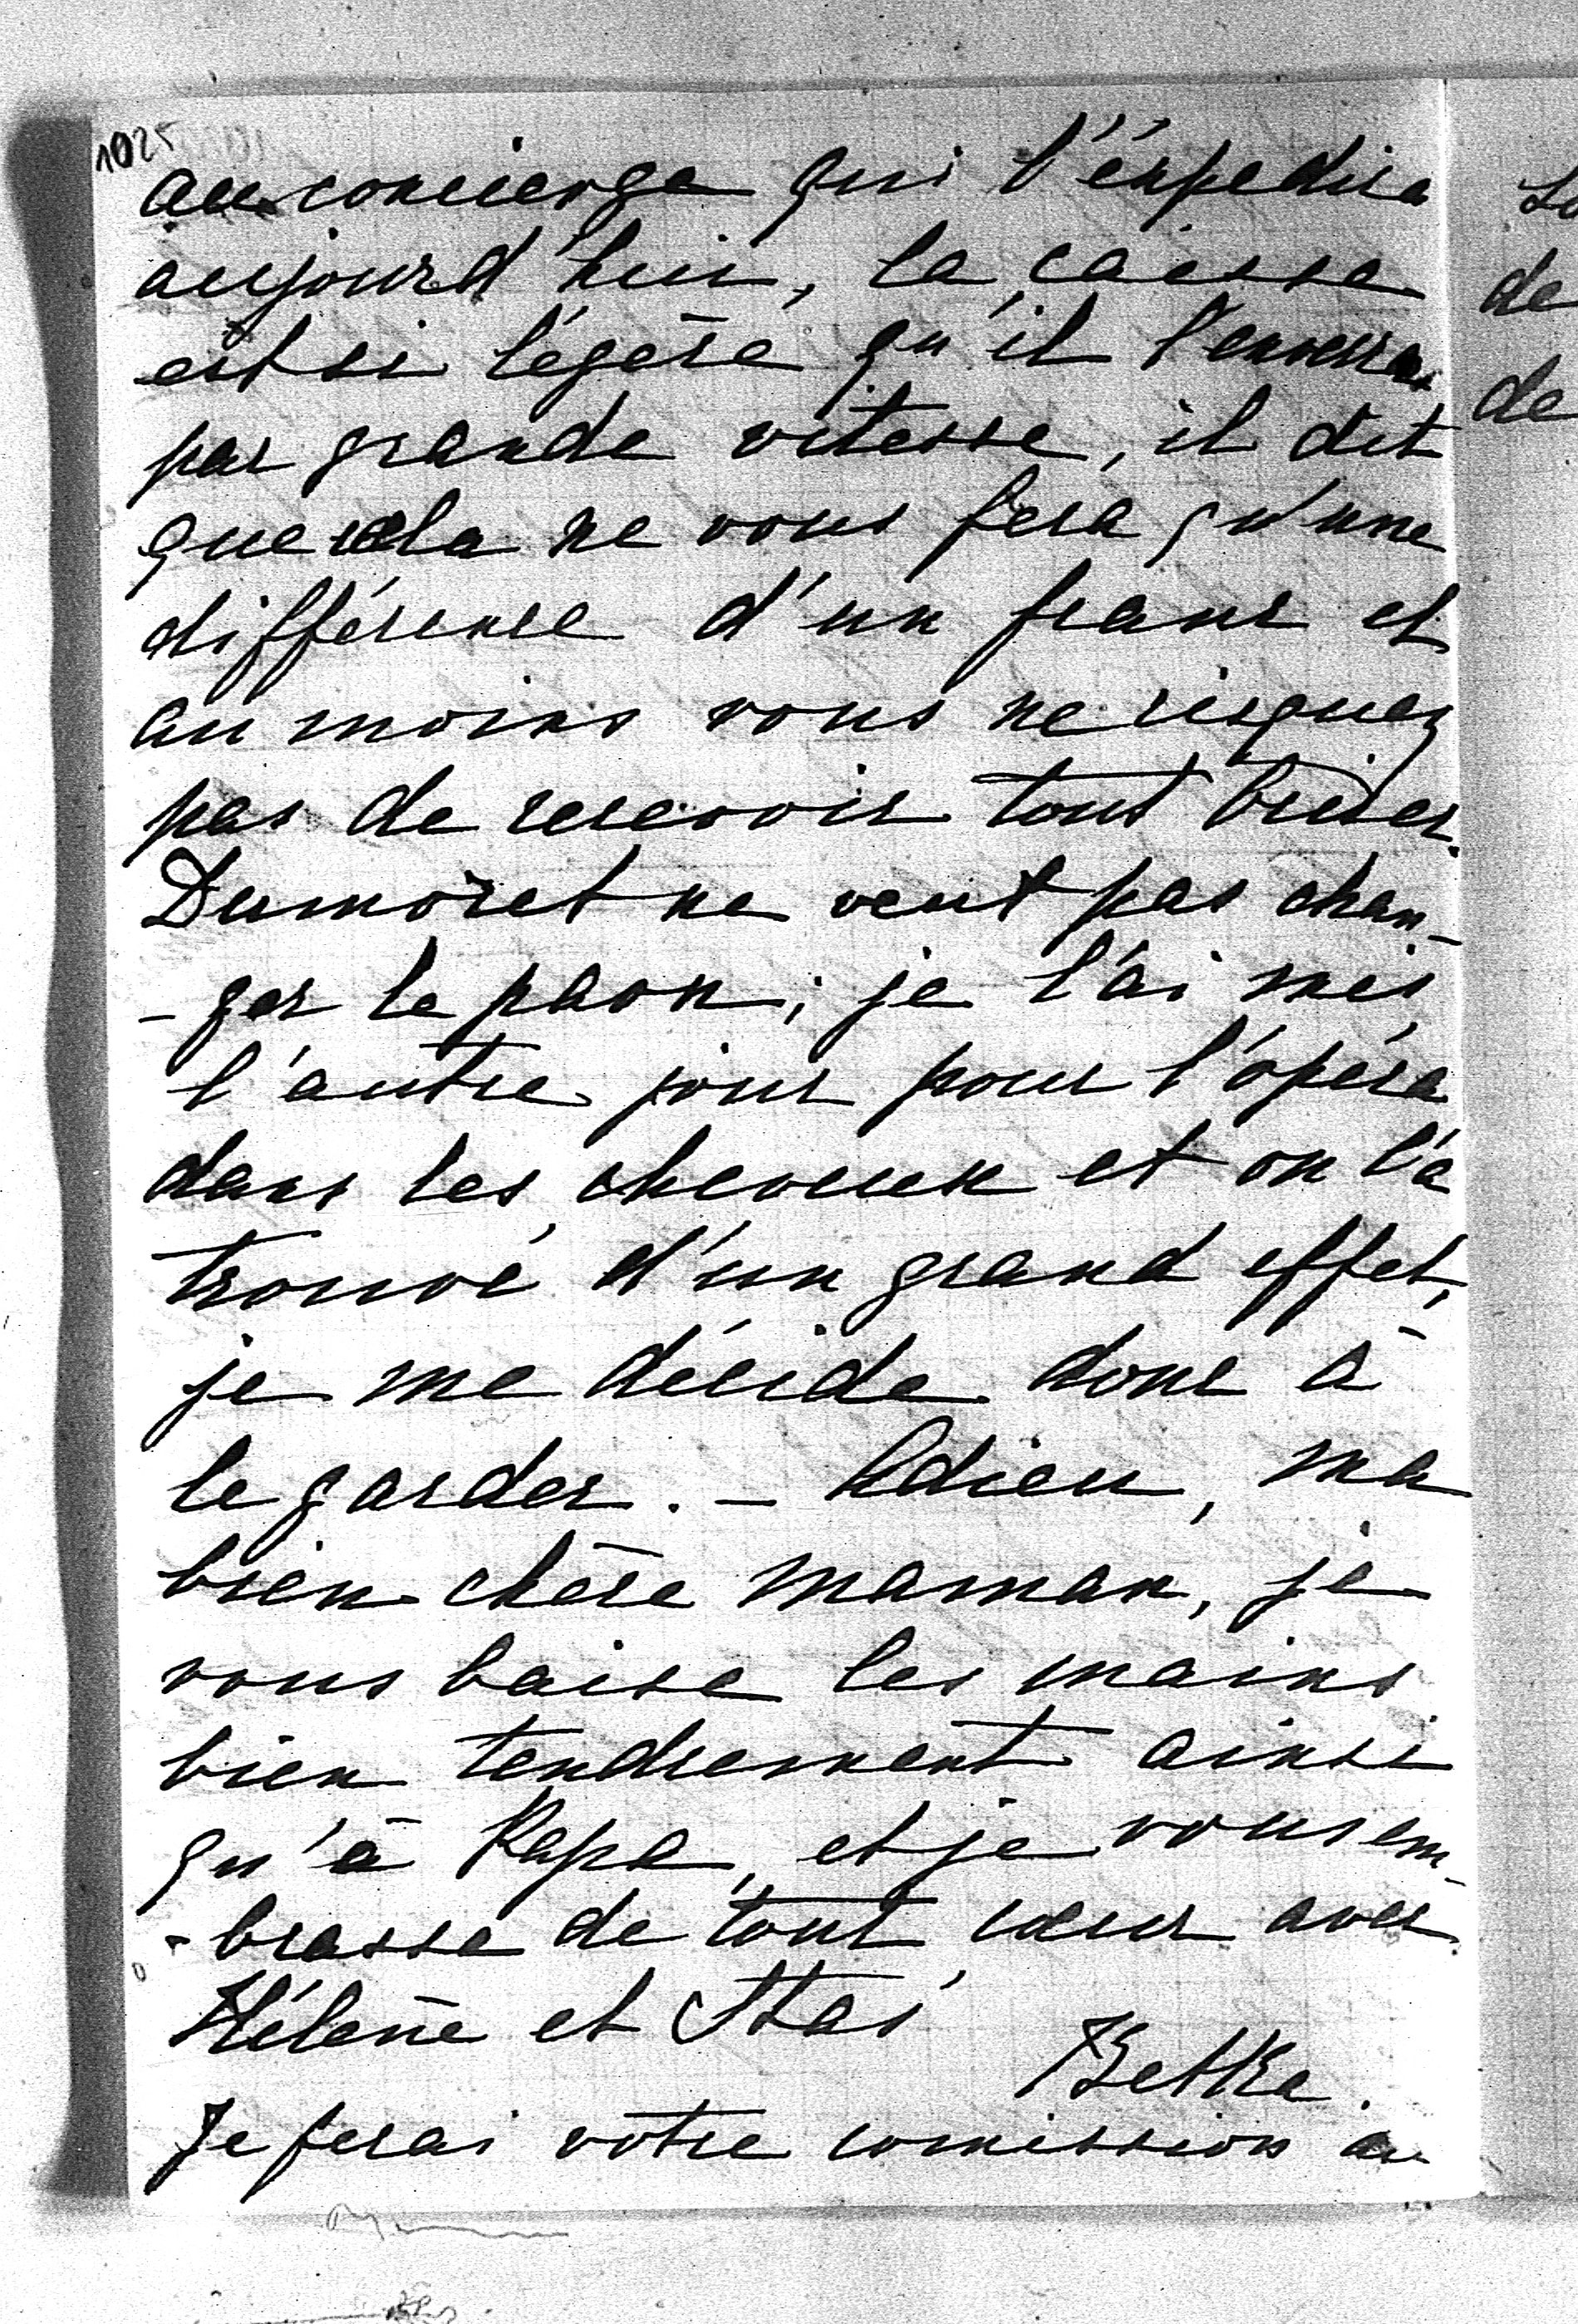 1025
au concierge qui l'éxpedira
aujourd'hui, la caisse
est si légère qu'il l'enverra
par grande vitesse, il dit
que cela ne vous fera qu'une
différence d'un franc et
au moins vous ne risquez
pas de recevoir tout briser.
Dumoret ne veut pas chan-
-ger le paon; je l'ai mis
l'autre jour pour l'opéra
dans les cheveux et on l'a
trouvé d'un grand effet,
je me décide donc à
le garder. - Adieu, ma
bien chère maman, je
vous baise les mains
bien tendrement ainsi
qu'à Papa, et je vous em-
-brasse de tout cœur avec
Hélène et Stas
Betka.
Je ferai votre comission au
de
de